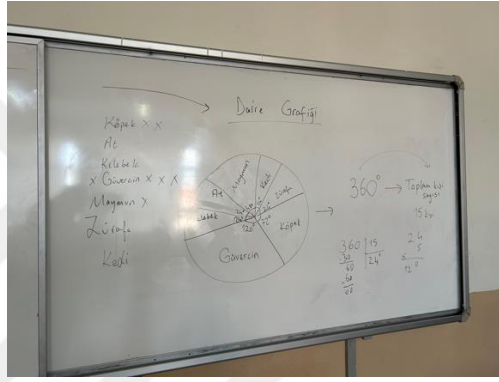 Daire Grafiği
Köpek x x
At
Kelebek
x Güvercin x x x
Maymun x
Zürafa
Kedi
At
Maymun
Kedi
Zürafa
Köpek
Güvercin
lebek
360° → Toplam kişi
sayısı
360 | 15
24°
24
5